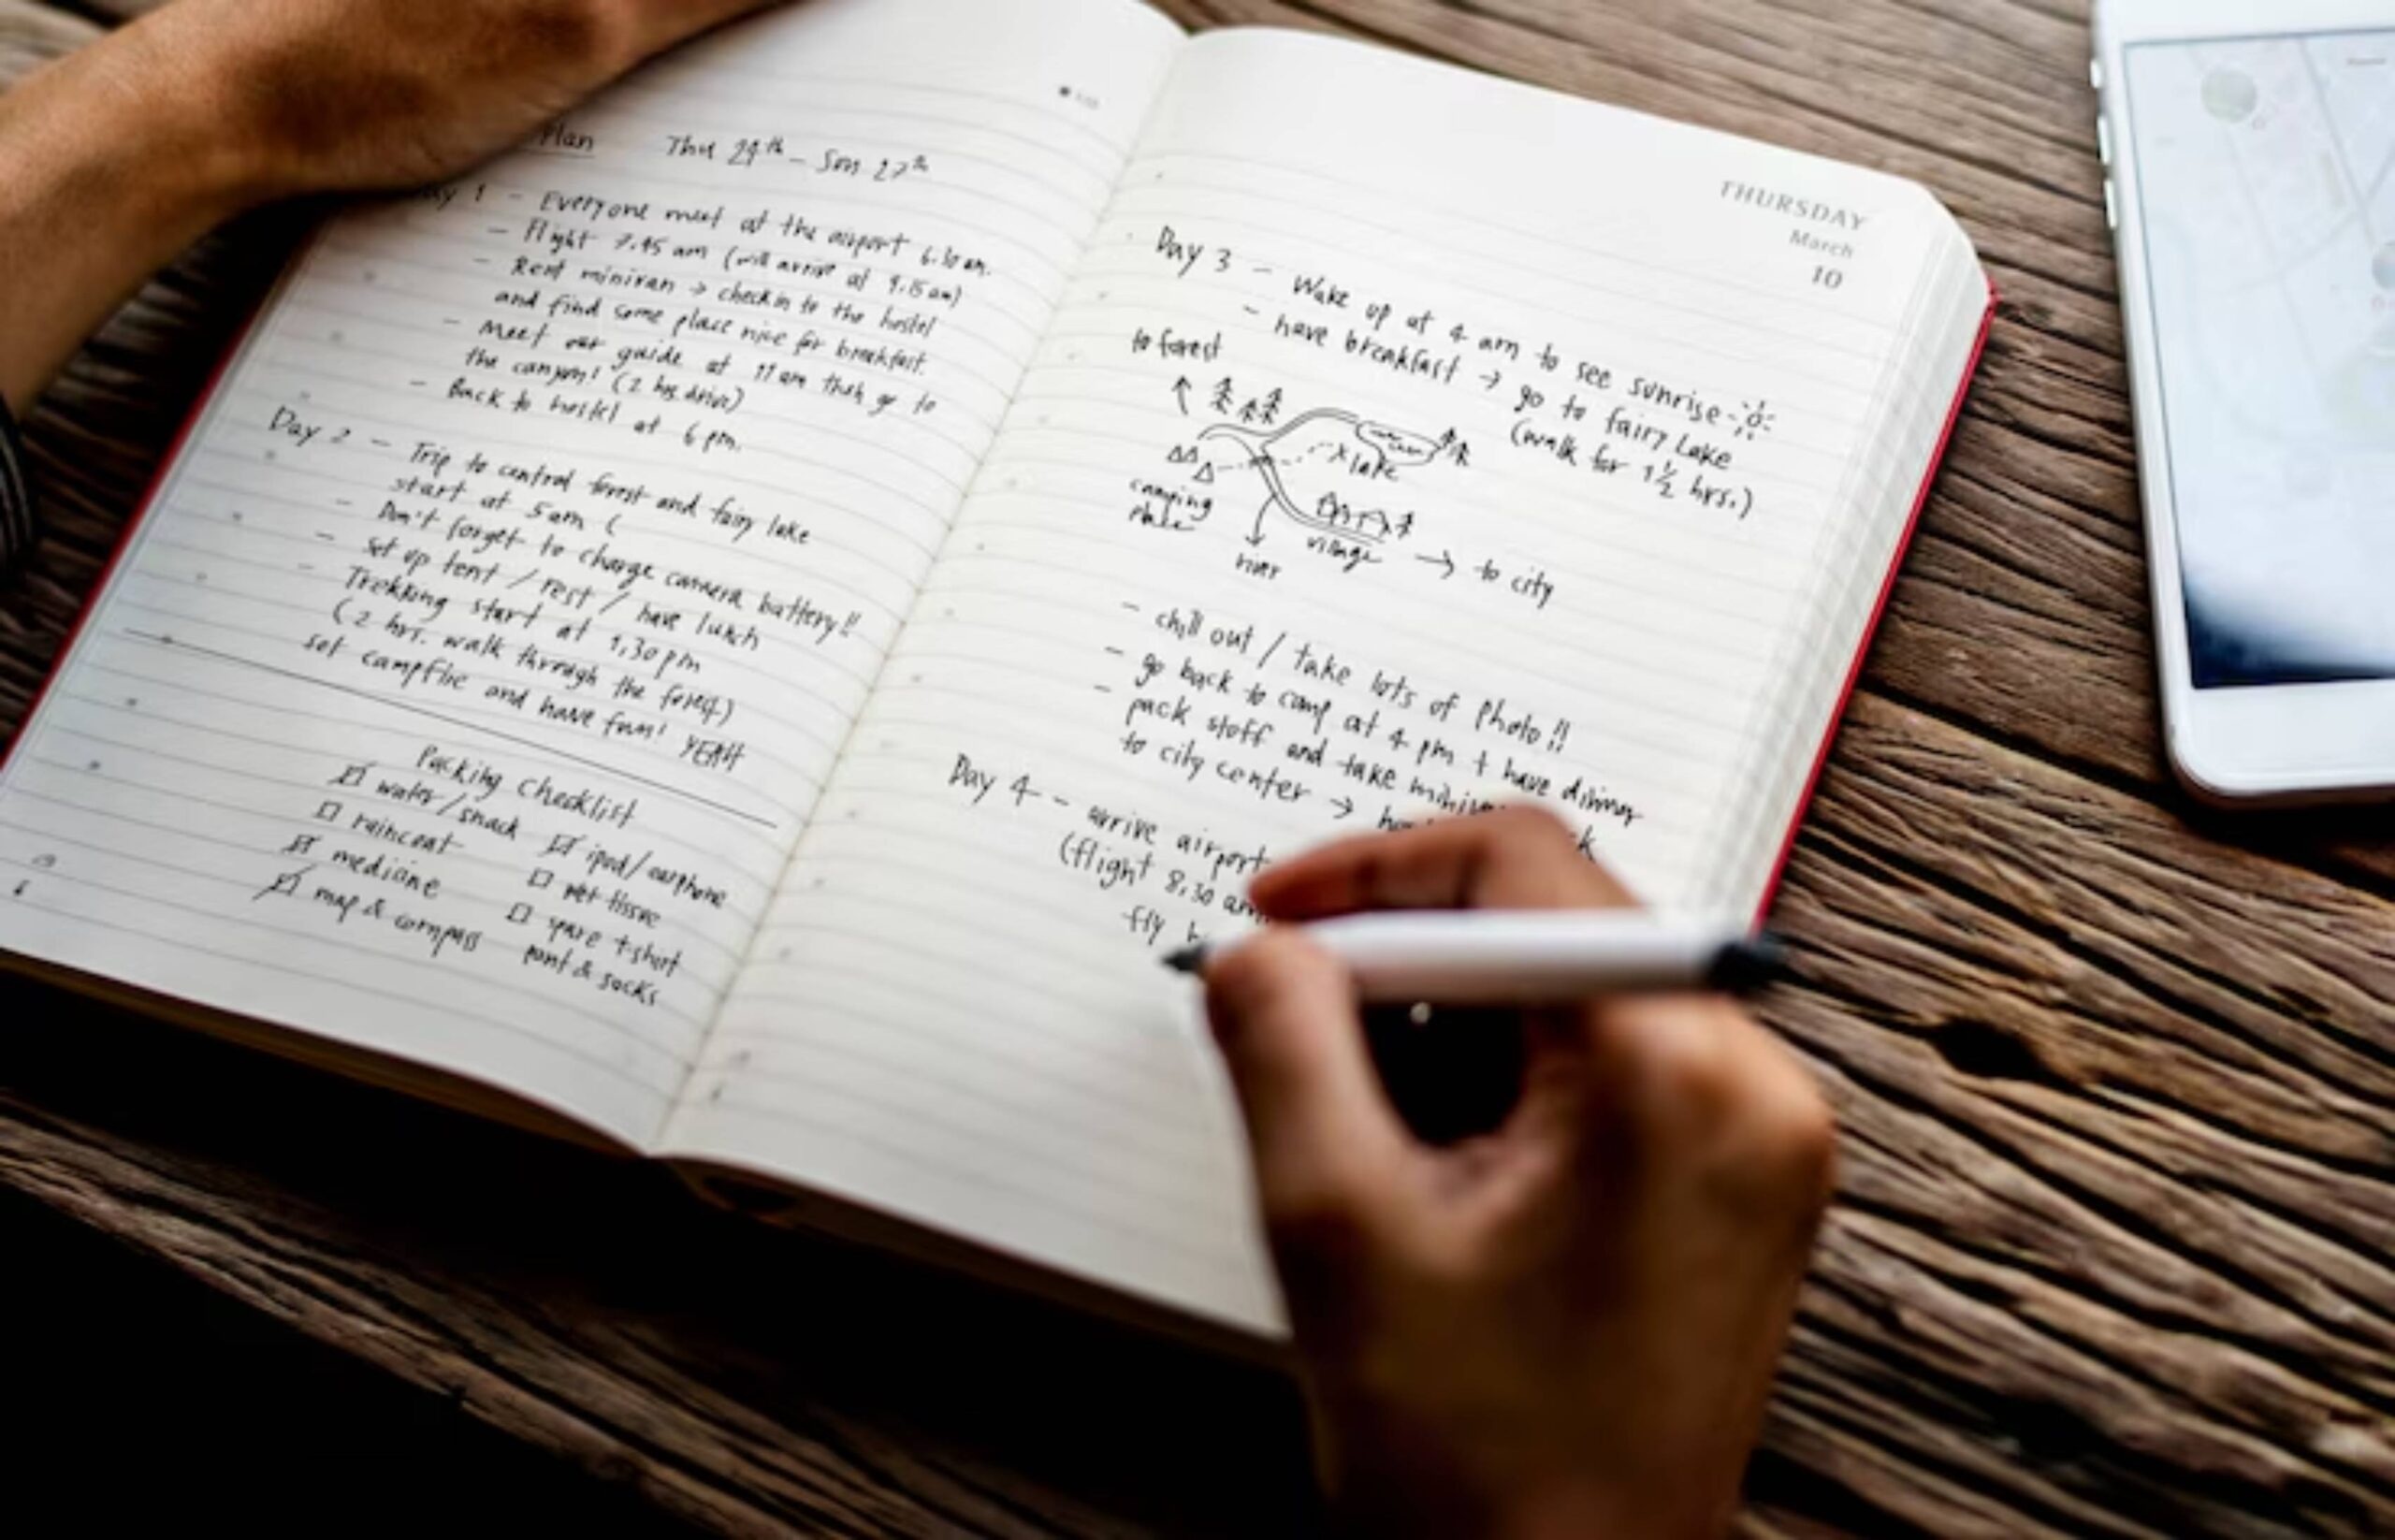 Plan Thu 24th - Sun 27th
Day 1 - Everyone meet at the airport 6.30 am.
- Flight 7.45 am (will arrive at 9.15 am)
- Rent minivan → checkin to the hostel
and find some place nice for breakfast.
- Meet our guide at 11 am then go to
the canyon! (2 hrs drive)
- Back to hostel at 6 pm.
Day 2 - Trip to central forest and fairy lake
start at 5 am (
- Don't forget to charge camera battery!!
- Set up tent / rest / have lunch
- Trekking start at 1.30 pm
(2 hrs. walk through the forest)
set campfire and have fun! YEAH
Packing Checklist
water/snack
raincoat
medicine
map & compass
ipod/earphone
wet tissue
spare t-shirt
pant & socks
THURSDAY
March
10
Day 3 - Wake up at 4 am to see sunrise
- have breakfast → go to fairy Lake
(walk for 1 1/2 hrs.)
to forest
x lake
camping
place
river
village → to city
- chill out / take lots of photo!!
- go back to camp at 4 pm + have dinner
- pack stuff and take
to city center →
Day 4 - arrive airport
(flight 8.30 am
fly